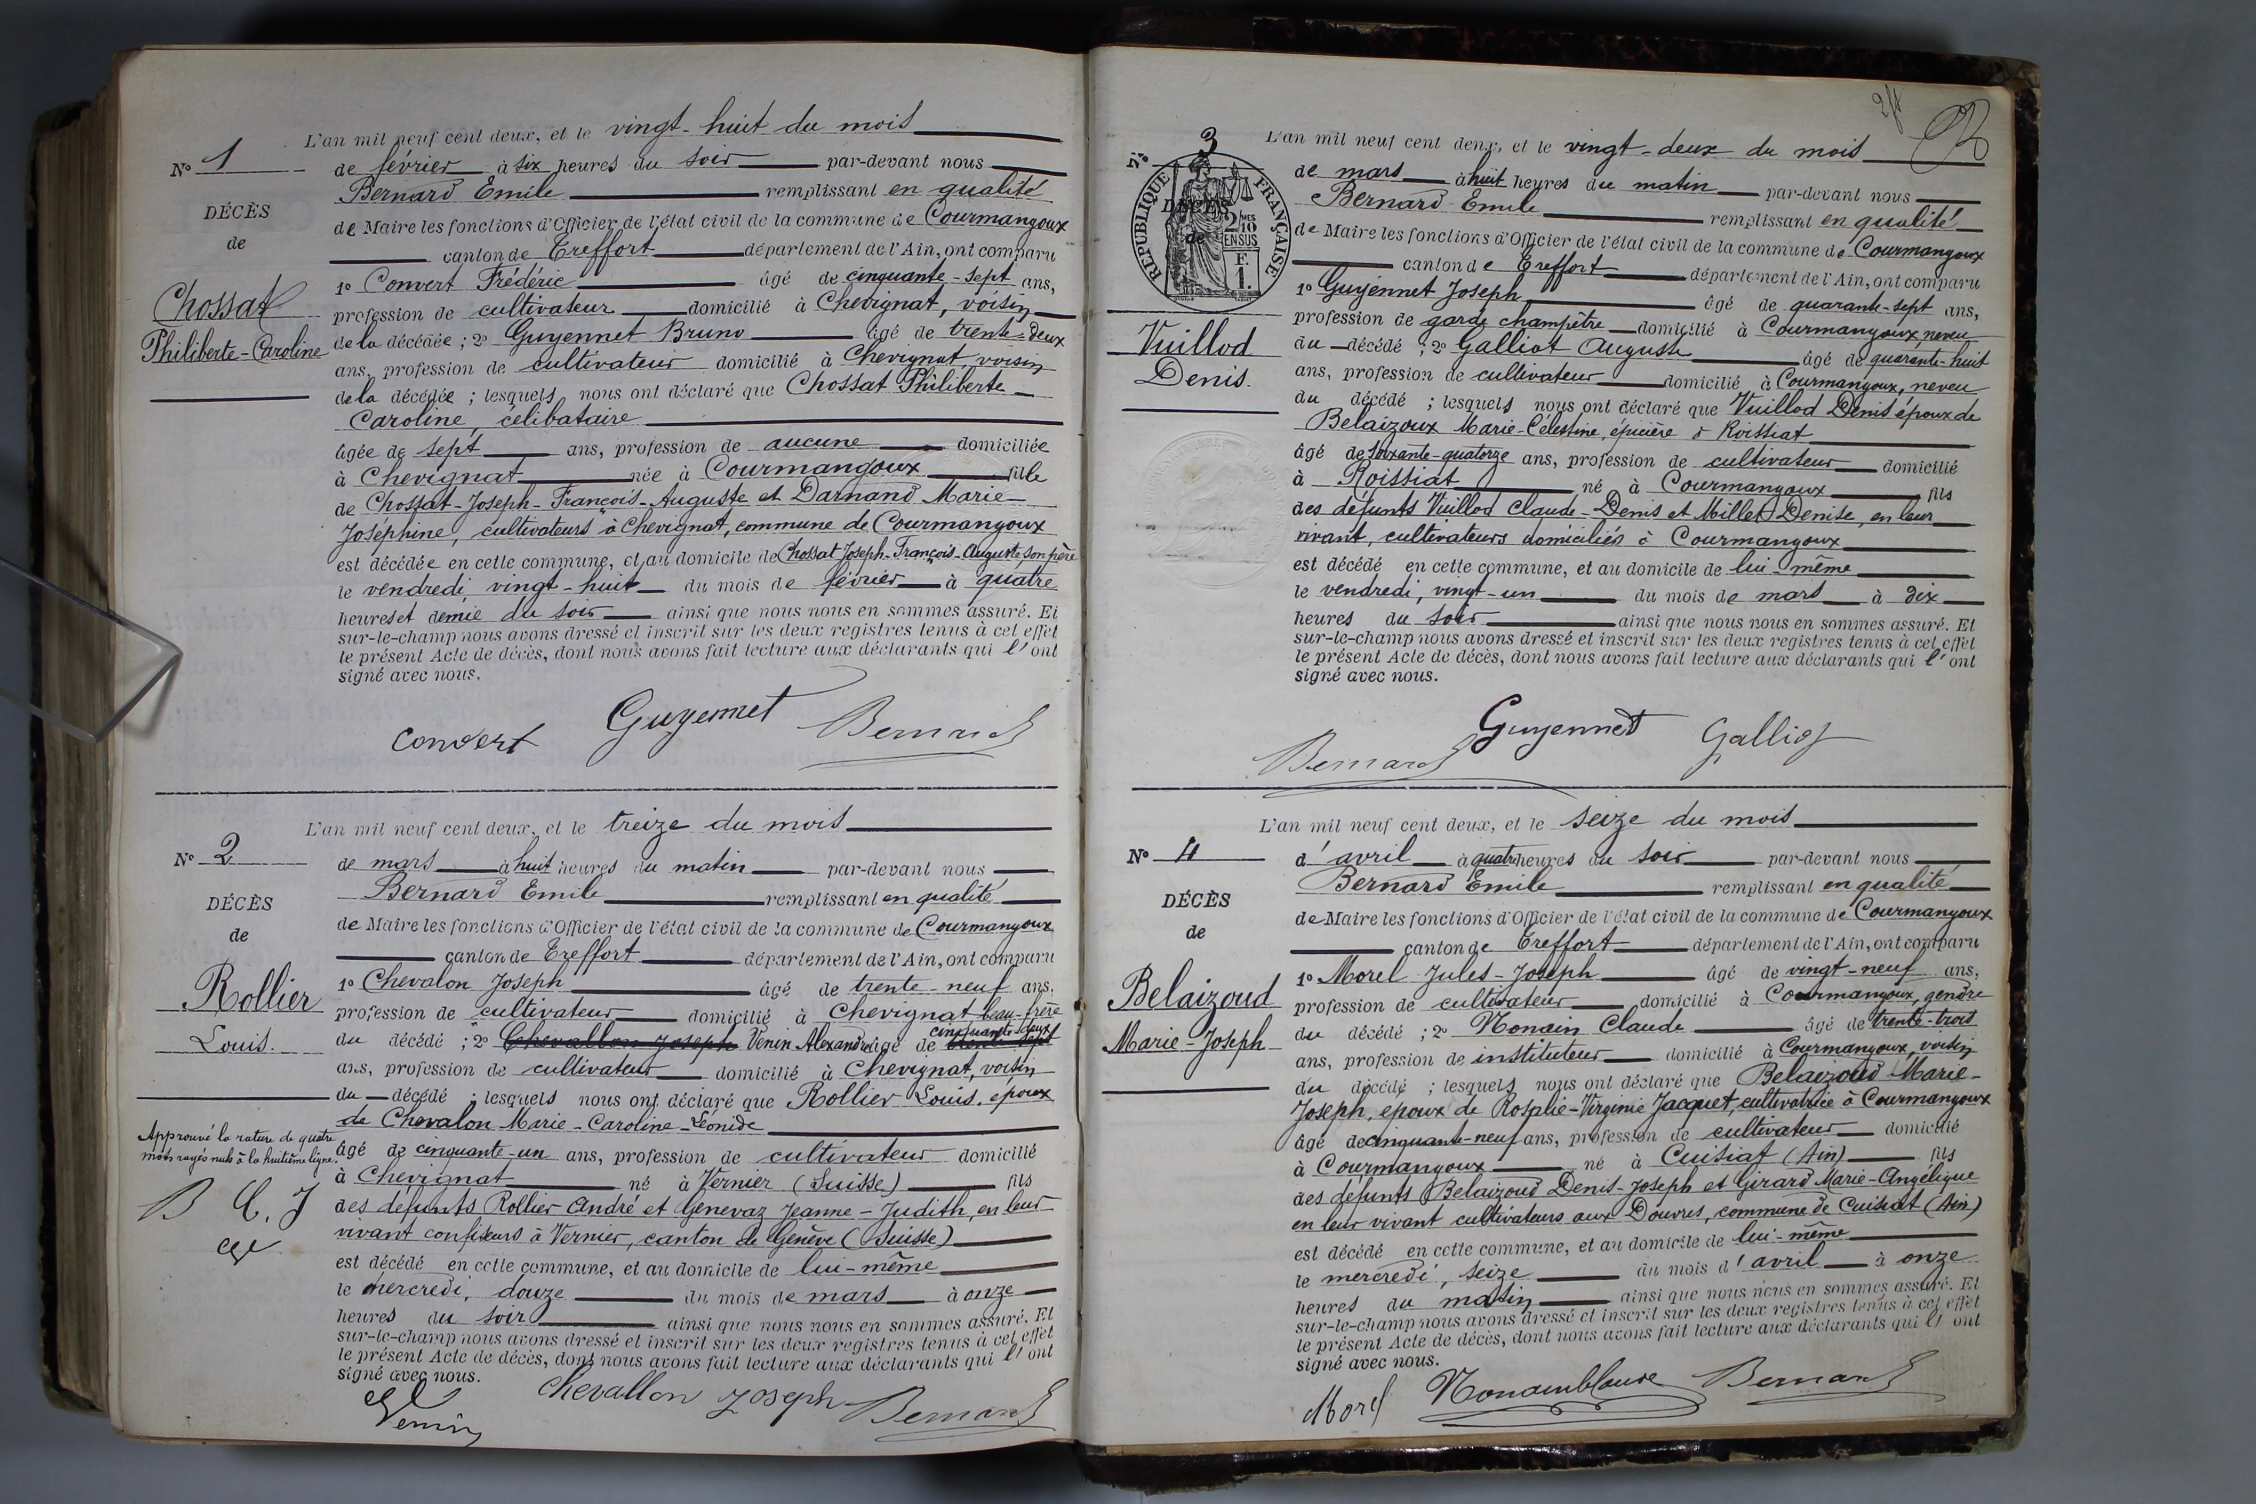 L'an mil neuf cent deux, et le vingt-huit du mois
N° 1 de février à six heures du soir par-devant nous
Bernard Emile remplissant en qualité
DÉCÈS
de Maire les fonctions d'Officier de l'état civil de la commune de Courmangoux
de
canton de Treffort département de l'Ain, ont comparu
1° Convert Frédéric âgé de cinquante-sept ans,
Chossat
profession de cultivateur domicilié à Chevignat, voisin
Philiberte-Caroline
de la décédée ; 2° Guyennet Bruno âgé de trente-deux
ans, profession de cultivateur domicilié à Chevignat, voisin
de la décédée ; lesquels nous ont déclaré que Chossat Philiberte
Caroline, célibataire
âgée de sept ans, profession de aucune domiciliée
à Chevignat née à Courmangoux fille
de Chossat-Joseph-François-Auguste et Darnand Marie-
Joséphine, cultivateurs à Chevignat, commune de Courmangoux
est décédée en cette commune, et au domicile de Chossat Joseph-François-Auguste, son père
le vendredi, vingt-huit du mois de février à quatre
heures et demie du soir ainsi que nous nous en sommes assuré. Et
sur-le-champ nous avons dressé et inscrit sur les deux registres tenus à cet effet
le présent Acte de décès, dont nous avons fait lecture aux déclarants qui l'ont
signé avec nous.
Convert Guyennet Bernard
L'an mil neuf cent deux, et le treize du mois
N° 2 de mars à huit heures du matin par-devant nous
Bernard Emile remplissant en qualité
DÉCÈS
de Maire les fonctions d'Officier de l'état civil de la commune de Courmangoux
de
canton de Treffort département de l'Ain, ont comparu
1° Chevalon Joseph âgé de trente-neuf ans,
Rollier
profession de cultivateur domicilié à Chevignat beau-frère
cinquante-deux
Louis.
du décédé ; 2° Chevallon Joseph Venin Alexandre âgé de trente-sept
ans, profession de cultivateur domicilié à Chevignat, voisin
du décédé ; lesquels nous ont déclaré que Rollier Louis, époux
de Chevalon Marie-Caroline-Léonide
Approuvé la rature de quatre
mots rayés nuls à la huitième ligne.
âgé de cinquante-un ans, profession de cultivateur domicilié
à Chevignat né à Vernier (Suisse) fils
B C. J
des défunts Rollier André et Genevaz Jeanne-Judith, en leur
vivant confiseurs à Vernier, canton de Genève (Suisse)
est décédé en cette commune, et au domicile de lui-même
le mercredi, douze du mois de mars à onze
heures du soir ainsi que nous nous en sommes assuré. Et
sur-le-champ nous avons dressé et inscrit sur les deux registres tenus à cet effet
le présent Acte de décès, dont nous avons fait lecture aux déclarants qui l'ont
signé avec nous.
Venin Chevallon Joseph Bernard
L'an mil neuf cent deux, et le vingt-deux du mois
N° 3 de mars à huit heures du matin par-devant nous
Bernard Emile remplissant en qualité
DÉCÈS
de
RÉPUBLIQUE FRANÇAISE
2/10 MES
EN SUS
F.
1.
de Maire les fonctions d'Officier de l'état civil de la commune de Courmangoux
canton de Treffort département de l'Ain, ont comparu
1° Guyennet Joseph âgé de quarante-sept ans,
profession de garde champêtre domicilié à Courmangoux, neveu
Vuillod
Denis.
du décédé ; 2° Galliot Auguste âgé de quarante-huit
ans, profession de cultivateur domicilié à Courmangoux, neveu
du décédé ; lesquels nous ont déclaré que Vuillod Denis époux de
Belaizoux Marie-Célestine, épicière à Roissiat
âgé de soixante-quatorze ans, profession de cultivateur domicilié
à Roissiat né à Courmangoux fils
des défunts Vuillod Claude-Denis et Millet Denise, en leur
vivant, cultivateurs domiciliés à Courmangoux
est décédé en cette commune, et au domicile de lui-même
le vendredi, vingt-un du mois de mars à dix
heures du soir ainsi que nous nous en sommes assuré. Et
sur-le-champ nous avons dressé et inscrit sur les deux registres tenus à cet effet
le présent Acte de décès, dont nous avons fait lecture aux déclarants qui l'ont
signé avec nous.
Bernard Guyennet Galliot
L'an mil neuf cent deux, et le seize du mois
N° 4 d'avril à quatre heures du soir par-devant nous
Bernard Emile remplissant en qualité
DÉCÈS
de Maire les fonctions d'Officier de l'état civil de la commune de Courmangoux
de
canton de Treffort département de l'Ain, ont comparu
1° Morel Jules-Joseph âgé de vingt-neuf ans,
Belaizoud
profession de cultivateur domicilié à Courmangoux, gendre
Marie-Joseph
du décédé ; 2° Nonain Claude âgé de trente-trois
ans, profession de instituteur domicilié à Courmangoux, voisin
du décédé ; lesquels nous ont déclaré que Belaizoud Marie-
Joseph, époux de Rosalie-Virginie Jacquet, cultivatrice à Courmangoux
âgé de cinquante-neuf ans, profession de cultivateur domicilié
à Courmangoux né à Cuisiat (Ain) fils
des défunts Belaizoud Denis-Joseph et Girard Marie-Angélique
en leur vivant cultivateurs aux Douvres, commune de Cuisiat (Ain)
est décédé en cette commune, et au domicile de lui-même
le mercredi, seize du mois d'avril à onze
heures du matin ainsi que nous nous en sommes assuré. Et
sur-le-champ nous avons dressé et inscrit sur les deux registres tenus à cet effet
le présent Acte de décès, dont nous avons fait lecture aux déclarants qui l'ont
signé avec nous.
Morel Nonain Claude Bernard